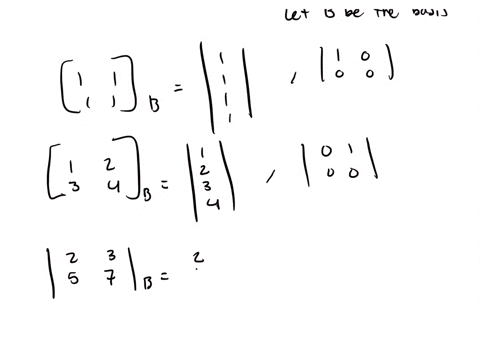 Let B be the basis
[1 1
1 1]B = |1
1
1
1| , |1 0
0 0|
[1 2
3 4]B = |1
2
3
4| , |0 1
0 0|
|2 3
5 7|B = 2